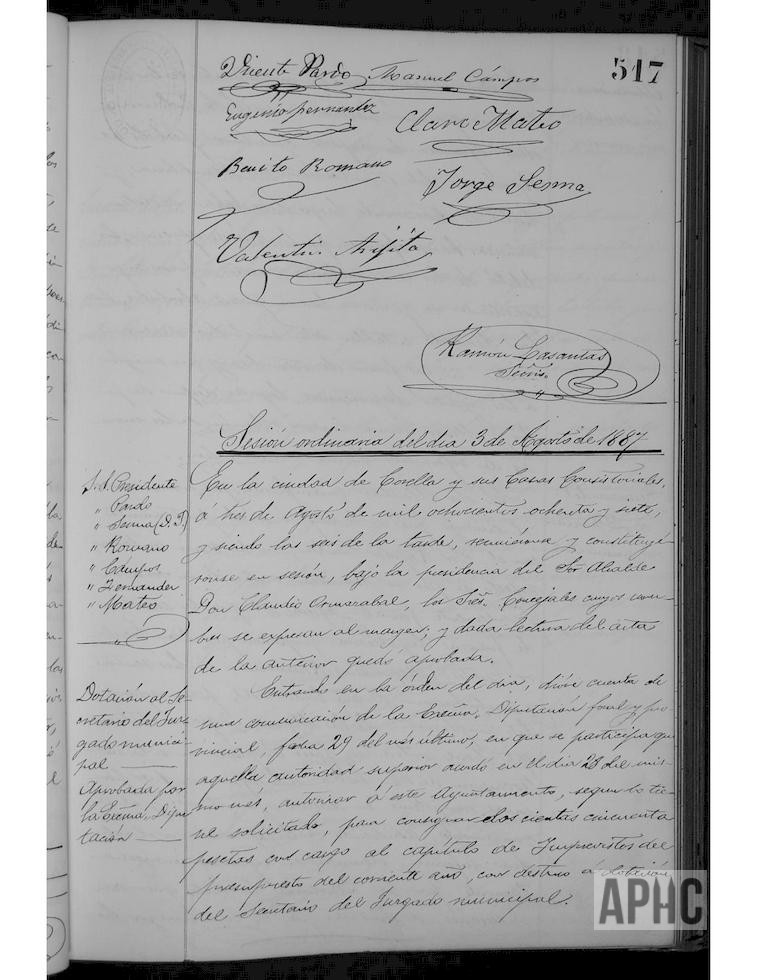 517
Vicente Pardo Manuel Cámpos
Eugenio Fernandez
Claro Mateo
Benito Romano
Jorge Senna
Valentin Arpita
Ramón Casantas
Secrio.
Sesión ordinaria del dia 3 de Agosto de 1887
S.S. Presidente
" Pardo
" Senna (D. J.)
" Romano
" Cámpos
" Fernander
" Mateo
En la ciudad de Corella y sus Casas Consistoriales,
á tres de Agosto de mil ochocientos ochenta y siete,
y siendo las seis de la tarde, reunieron y constituyé
ronse en sesión, bajo la presidencia del Sor Alcalde
Don Claudio Ormazabal, los Srēs. Concejales cuyos nom-
bres se expresan al margen, y dada lectura del acta
de la anterior quedó aprobada.
Dotación al Se-
cretario del Juz-
gado munici-
pal
Aprobada por
la Excma. Dipu
tación
Entrando en la órden del dia, dióse cuenta de
una comunicación de la Excma. Diputación foral y pro
vincial, fecha 29 del mes último, en que se participa que
aquella autoridad superior acordó en el dia 28 del mis-
mo mes, autorizar á este Ayuntamiento, segun lo tie-
ne solicitado, para consignar doscientas cincuenta
pesetas con cargo al capítulo de Imprevistos del
presupuesto del corriente año, con destino á dotación
del Secretario del Juzgado municipal.
APHC